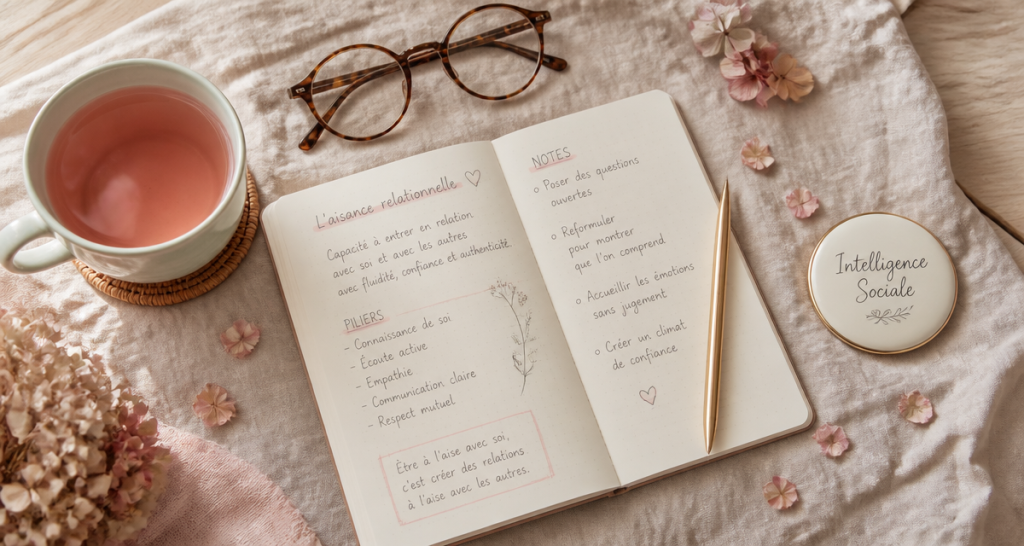 L'aisance relationnelle
Capacité à entrer en relation
avec soi et avec les autres
avec fluidité, confiance et authenticité.
PILIERS
- Connaissance de soi
- Écoute active
- Empathie
- Communication claire
- Respect mutuel
Être à l'aise avec soi,
c'est créer des relations
à l'aise avec les autres.
NOTES
o Poser des questions
ouvertes
o Reformuler
pour montrer
que l'on comprend
o Accueillir les émotions
sans jugement
o Créer un climat
de confiance
Intelligence
Sociale